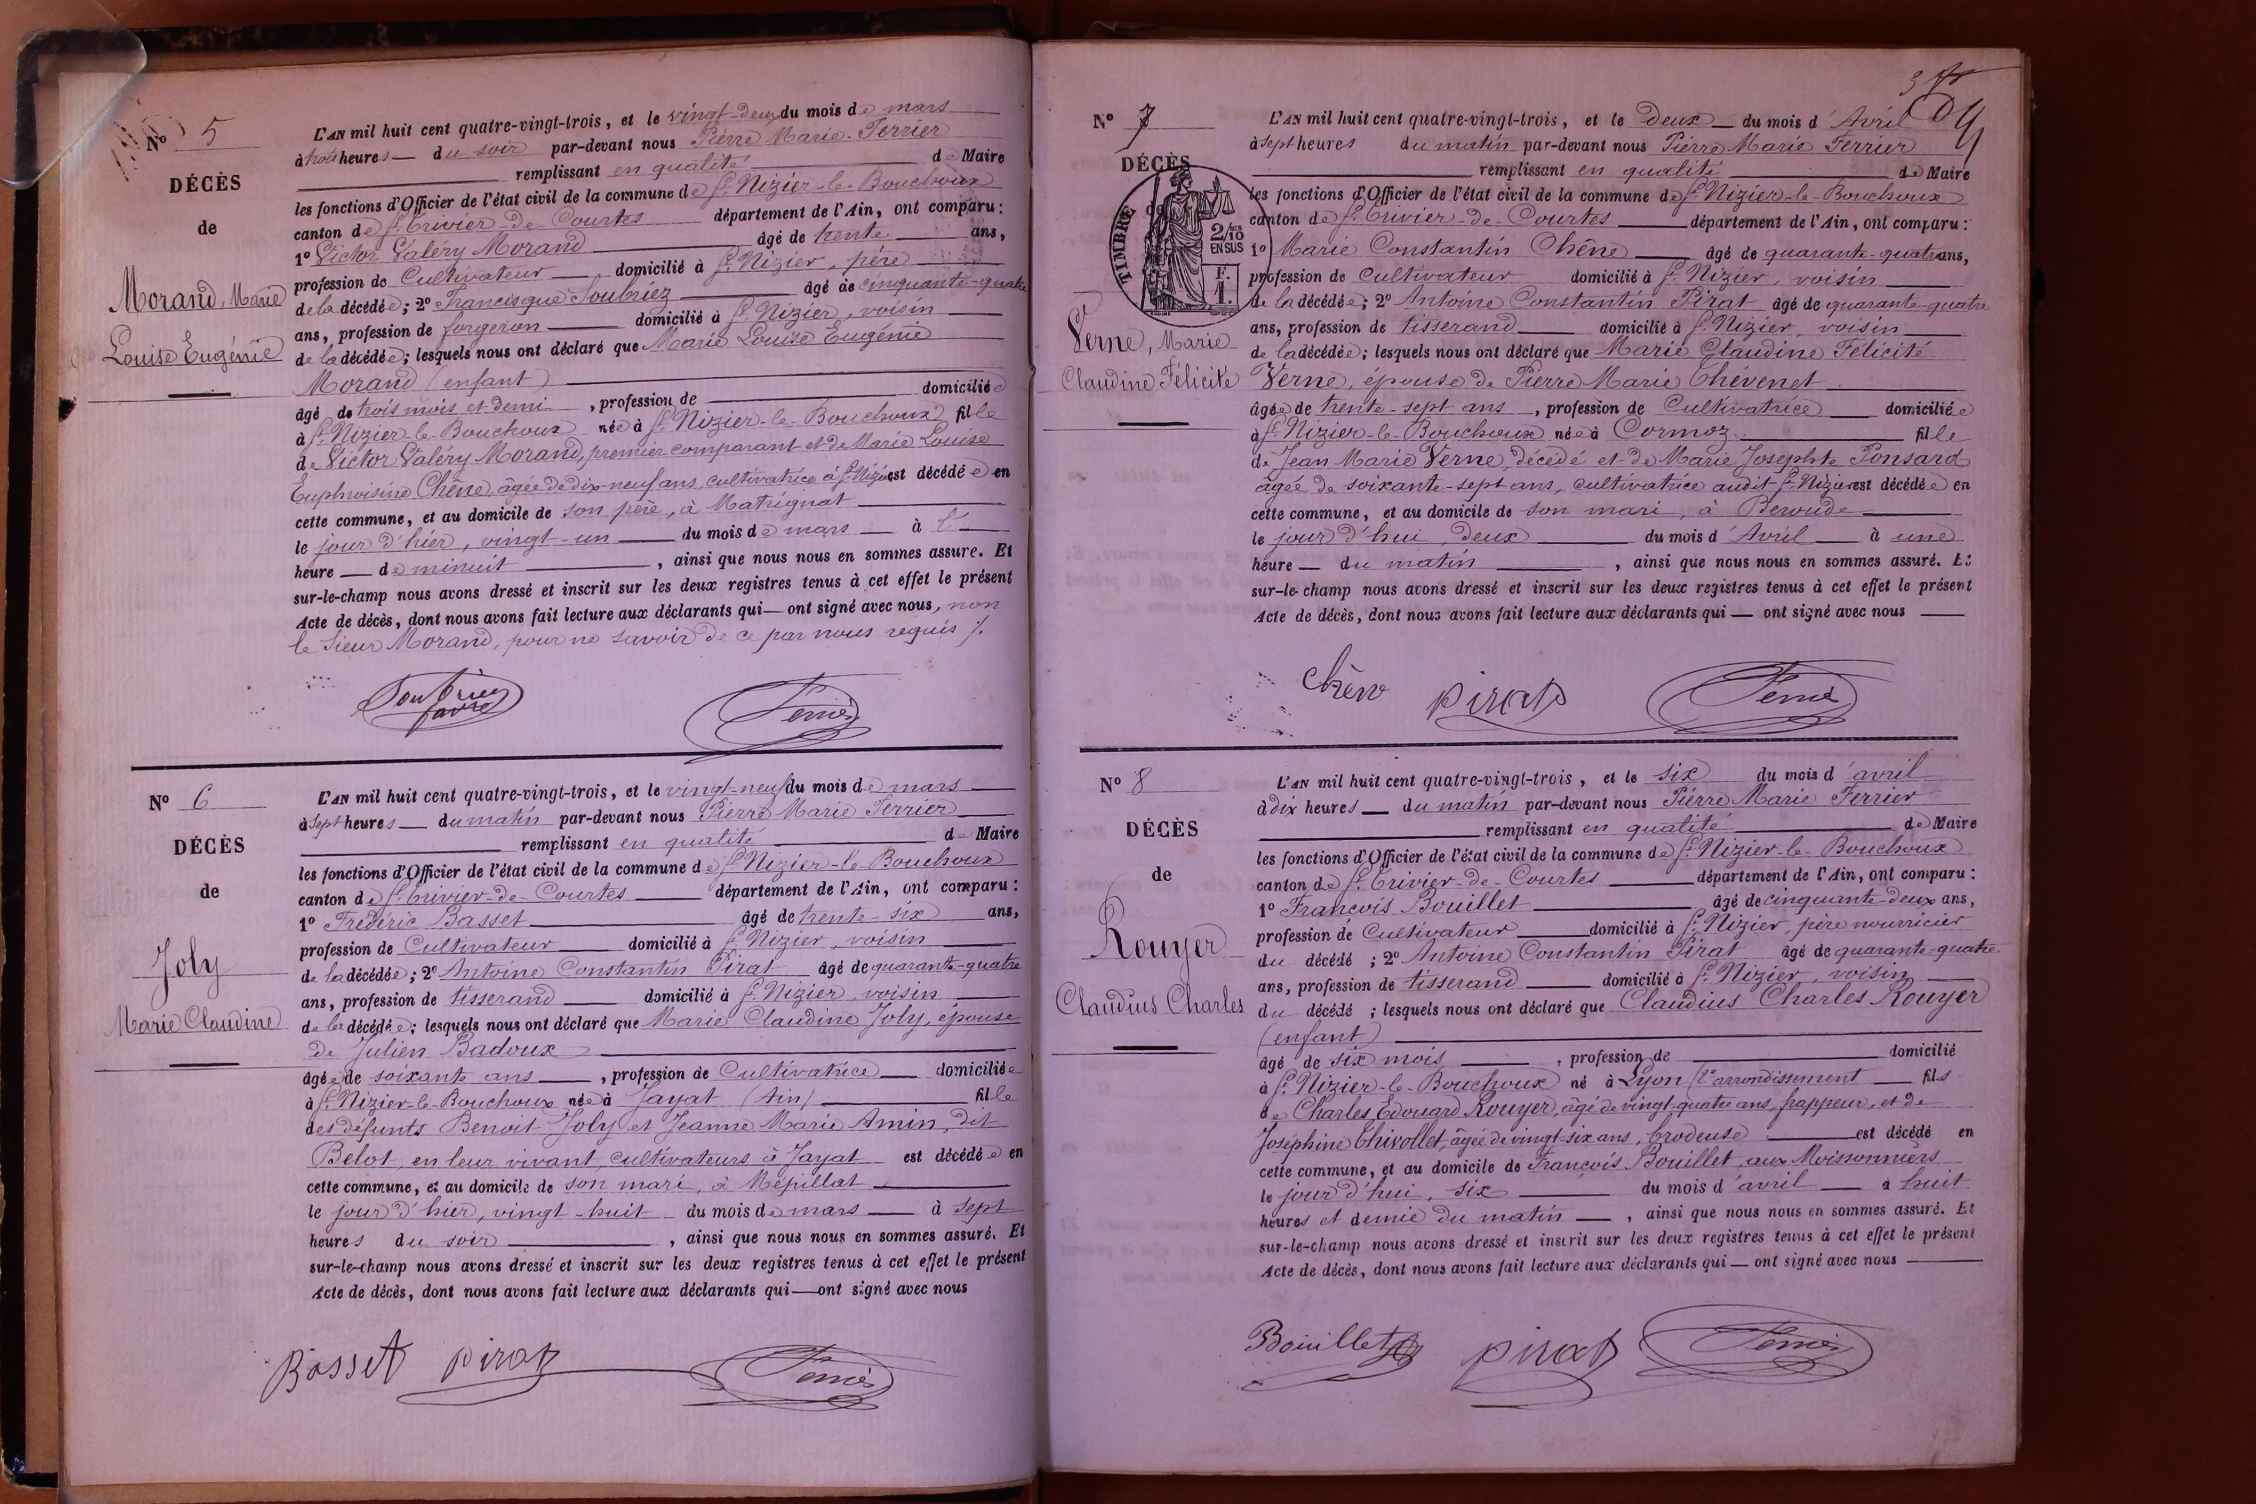 Nº 5
DÉCÈS
de
Morand, Marie
Louise Eugénie
L'AN mil huit cent quatre-vingt-trois, et le vingt-deux du mois de mars
à trois heures du soir par-devant nous Pierre Marie Ferrier
remplissant en qualité de Maire
les fonctions d'Officier de l'état civil de la commune de St Nizier-le-Bouchoux
canton de St Trivier-de-Courtes département de l'Ain, ont comparu :
1º Victor Valéry Morand âgé de trente ans,
profession de Cultivateur domicilié à St Nizier, père
de la décédée ; 2º Francisque Soubriez âgé de cinquante-quatre
ans, profession de forgeron domicilié à St Nizier, voisin
de la décédée ; lesquels nous ont déclaré que Marie Louise Eugénie
Morand (enfant)
âgé de trois mois et demi, profession de domiciliée
à St Nizier-le-Bouchoux née à St Nizier-le-Bouchoux fille
de Victor Valéry Morand, premier comparant et de Marie Louise
Euphroisine Chêne, âgée de dix-neuf ans, cultivatrice à St Nizier est décédée en
cette commune, et au domicile de son père, à Matrignat
le jour d'hier, vingt-un du mois de mars à l'
heure de minuit, ainsi que nous nous en sommes assuré. Et
sur-le-champ nous avons dressé et inscrit sur les deux registres tenus à cet effet le présent
Acte de décès, dont nous avons fait lecture aux déclarants qui ont signé avec nous, non
le sieur Morand, pour ne savoir de ce par nous requis ./.
Ferrier
Nº 6
DÉCÈS
de
Joly
Marie Claudine
L'AN mil huit cent quatre-vingt-trois, et le vingt-neuf du mois de mars
à sept heures du matin par-devant nous Pierre Marie Ferrier
remplissant en qualité de Maire
les fonctions d'Officier de l'état civil de la commune de St Nizier-le-Bouchoux
canton de St Trivier-de-Courtes département de l'Ain, ont comparu :
1º Frédéric Basset âgé de trente-six ans,
profession de Cultivateur domicilié à St Nizier, voisin
de la décédée ; 2º Antoine Constantin Pirat âgé de quarante-quatre
ans, profession de tisserand domicilié à St Nizier, voisin
de la décédée ; lesquels nous ont déclaré que Marie Claudine Joly, épouse
de Julien Badoux
âgée de soixante ans, profession de Cultivatrice domiciliée
à St Nizier-le-Bouchoux née à Jayat (Ain) fille
des défunts Benoit Joly et Jeanne Marie Amin, dit
Belot, en leur vivant, cultivateurs à Jayat est décédée en
cette commune, et au domicile de son mari, à Mépillat
le jour d'hier, vingt-huit du mois de mars à sept
heures du soir, ainsi que nous nous en sommes assuré. Et
sur-le-champ nous avons dressé et inscrit sur les deux registres tenus à cet effet le présent
Acte de décès, dont nous avons fait lecture aux déclarants qui ont signé avec nous
Basset Pirat Ferrier
Nº 7
DÉCÈS
de
TIMBRE
2/10
EN SUS
F.
1.
Verne, Marie
Claudine Félicité
L'AN mil huit cent quatre-vingt-trois, et le deux du mois d'Avril
à sept heures du matin par-devant nous Pierre Marie Ferrier
remplissant en qualité de Maire
les fonctions d'Officier de l'état civil de la commune de St Nizier-le-Bouchoux
canton de St Trivier-de-Courtes département de l'Ain, ont comparu :
1º Marie Constantin Chêne âgé de quarante-quatre ans,
profession de Cultivateur domicilié à St Nizier, voisin
de la décédée ; 2º Antoine Constantin Pirat âgé de quarante-quatre
ans, profession de tisserand domicilié à St Nizier, voisin
de la décédée ; lesquels nous ont déclaré que Marie Claudine Félicité
Verne, épouse de Pierre Marie Thévenet
âgée de trente-sept ans, profession de Cultivatrice domiciliée
à St Nizier-le-Bouchoux née à Cormoz fille
de Jean Marie Verne, décédé et de Marie Josephte Ponsard
âgée de soixante-sept ans, cultivatrice audit St Nizier est décédée en
cette commune, et au domicile de son mari, à Beroude
le jour d'hui, deux du mois d'Avril à une
heure du matin, ainsi que nous nous en sommes assuré. Et
sur-le-champ nous avons dressé et inscrit sur les deux registres tenus à cet effet le présent
Acte de décès, dont nous avons fait lecture aux déclarants qui ont signé avec nous
Chêne Pirat Ferrier
Nº 8
DÉCÈS
de
Rouyer
Claudius Charles
L'AN mil huit cent quatre-vingt-trois, et le six du mois d'avril
à dix heures du matin par-devant nous Pierre Marie Ferrier
remplissant en qualité de Maire
les fonctions d'Officier de l'état civil de la commune de St Nizier-le-Bouchoux
canton de St Trivier-de-Courtes département de l'Ain, ont comparu :
1º François Bouillet âgé de cinquante-deux ans,
profession de Cultivateur domicilié à St Nizier, père nourricier
du décédé ; 2º Antoine Constantin Pirat âgé de quarante-quatre
ans, profession de tisserand domicilié à St Nizier, voisin
du décédé ; lesquels nous ont déclaré que Claudius Charles Rouyer
(enfant)
âgé de six mois, profession de domicilié
à St Nizier-le-Bouchoux né à Lyon (1er arrondissement fils
de Charles Edouard Rouyer, âgé de vingt-quatre ans, frappeur, et de
Joséphine Thivollet, âgée de vingt-six ans, brodeuse est décédé en
cette commune, et au domicile de François Bouillet, aux Moissonniers
le jour d'hui, six du mois d'avril à huit
heures et demie du matin, ainsi que nous nous en sommes assuré. Et
sur-le-champ nous avons dressé et inscrit sur les deux registres tenus à cet effet le présent
Acte de décès, dont nous avons fait lecture aux déclarants qui ont signé avec nous
Bouillet Pirat Ferrier